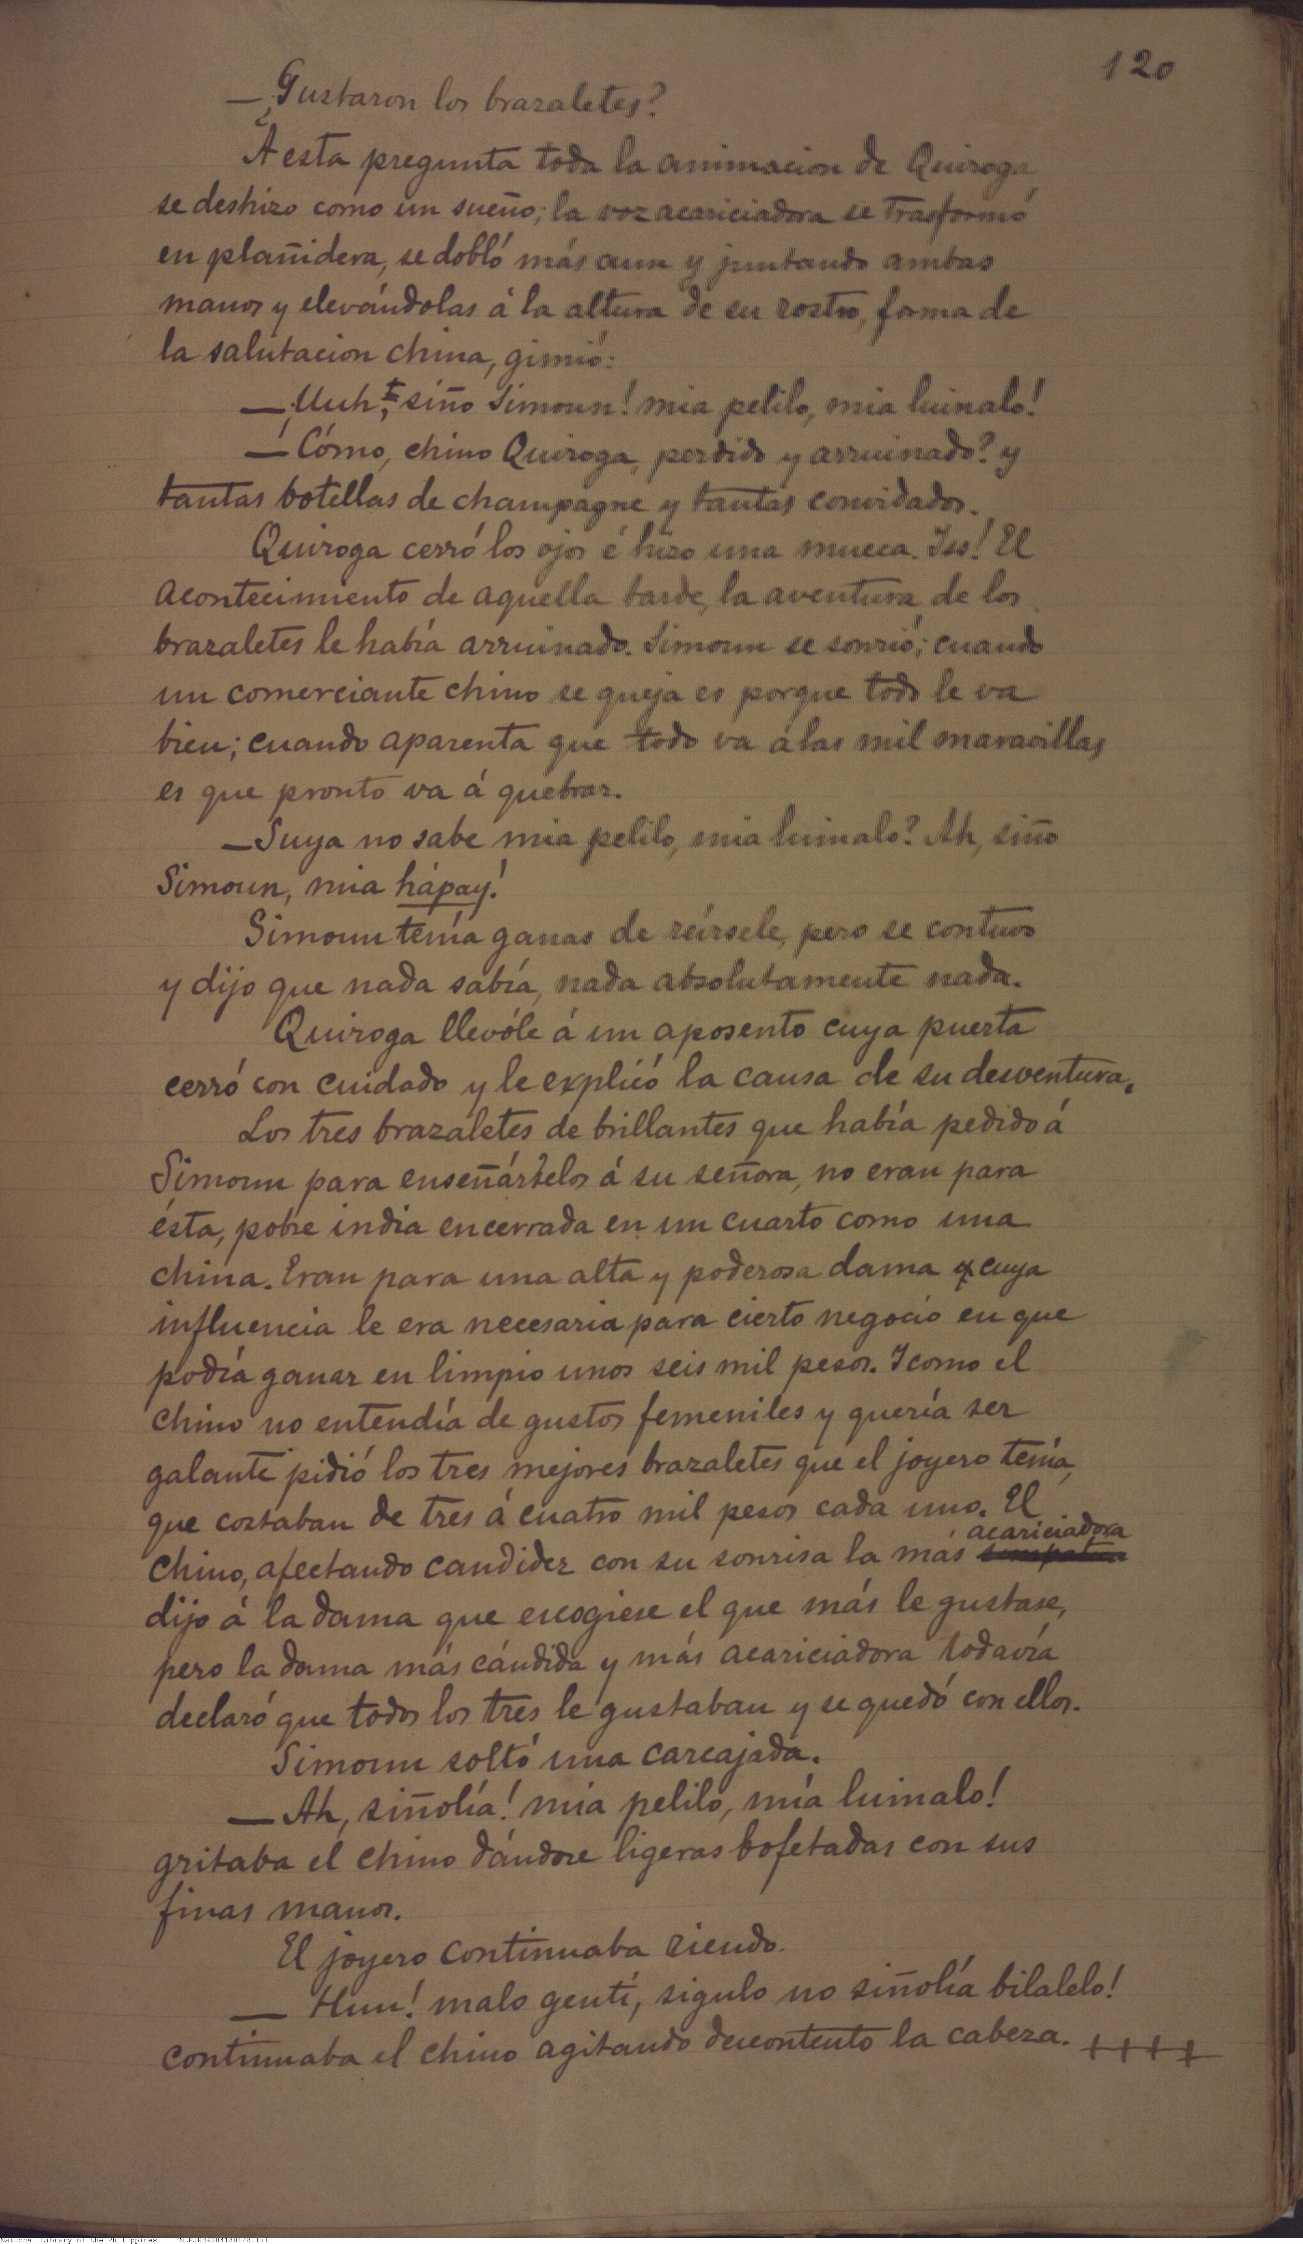 120
—¿Gustaron los brazaletes?
A esta pregunta toda la animacion de Quiroga
se deshizo como un sueño; la voz acariciadora se trasformó
en plañidera, se dobló más aun y juntando ambas
manos y elevándolas á la altura de su rostro, forma de
la salutacion china, gimió:
—¡Uuh, siño Simoun! mia pelilo, mia luinalo!
—¿Cómo, chino Quiroga, perdido y arruinado? y
tantas botellas de champagne y tantas convidados.
Quiroga cerró los ojos é hizo una mueca. Jss! El
acontecimiento de aquella tarde, la aventura de los
brazaletes le había arruinado. Simoun se sonrió; cuando
un comerciante chino se queja es porque todo le va
bien; cuando aparenta que todo va á las mil maravillas
es que pronto va á quebrar.
—Suya no sabe mia pelilo, mia luinalo? Ah, siño
Simoun, mia hápay!
Simoun tenía ganas de reírsele, pero se contuvo
y dijo que nada sabía, nada absolutamente nada.
Quiroga llevóle á un aposento cuya puerta
cerró con cuidado y le explicó la causa de su desventura.
Los tres brazaletes de brillantes que había pedido á
Simoun para enseñárselos á su señora, no eran para
ésta, pobre india encerrada en un cuarto como una
china. Eran para una alta y poderosa dama cuya
influencia le era necesaria para cierto negocio en que
podía ganar en limpio unos seis mil pesos. Y como el
chino no entendía de gustos femeniles y quería ser
galante pidió los tres mejores brazaletes que el joyero tenía,
que costaban de tres á cuatro mil pesos cada uno. El
acariciadora
chino, afectando candidez con su sonrisa la más
dijo á la dama que escogiese el que más le gustase,
pero la dama más cándida y más acariciadora todavía
declaró que todos los tres le gustaban y se quedó con ellos.
Simoun soltó una carcajada.
—Ah, siñolía! mia pelilo, mía luinalo!
gritaba el chino dándose ligeras bofetadas con sus
finas manos.
El joyero continuaba riendo.
—Huu! malo genti, sigulo no siñolía bilalelo!
continuaba el chino agitando descontento la cabeza.